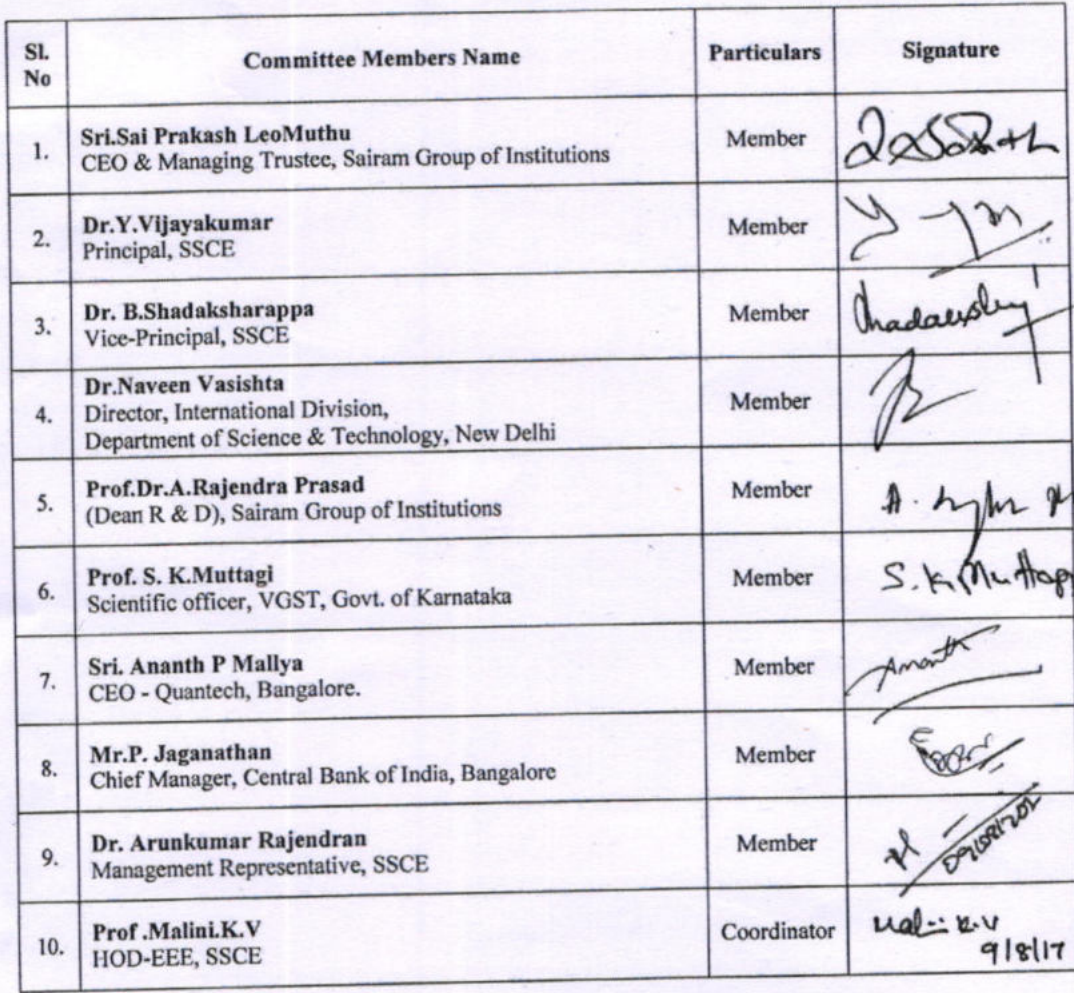 Sl.
No
Committee Members Name
Particulars
Signature
1.
Sri.Sai Prakash LeoMuthu
CEO & Managing Trustee, Sairam Group of Institutions
Member
2.
Dr.Y.Vijayakumar
Principal, SSCE
Member
3.
Dr. B.Shadaksharappa
Vice-Principal, SSCE
Member
4.
Dr.Naveen Vasishta
Director, International Division,
Department of Science & Technology, New Delhi
Member
5.
Prof.Dr.A.Rajendra Prasad
(Dean R & D), Sairam Group of Institutions
Member
A.
6.
Prof. S. K.Muttagi
Scientific officer, VGST, Govt. of Karnataka
Member
S. K.
7.
Sri. Ananth P Mallya
CEO - Quantech, Bangalore.
Member
Ananth
8.
Mr.P. Jaganathan
Chief Manager, Central Bank of India, Bangalore
Member
9.
Dr. Arunkumar Rajendran
Management Representative, SSCE
Member
10.
Prof .Malini.K.V
HOD-EEE, SSCE
Coordinator
Malini K.V
9/8/17